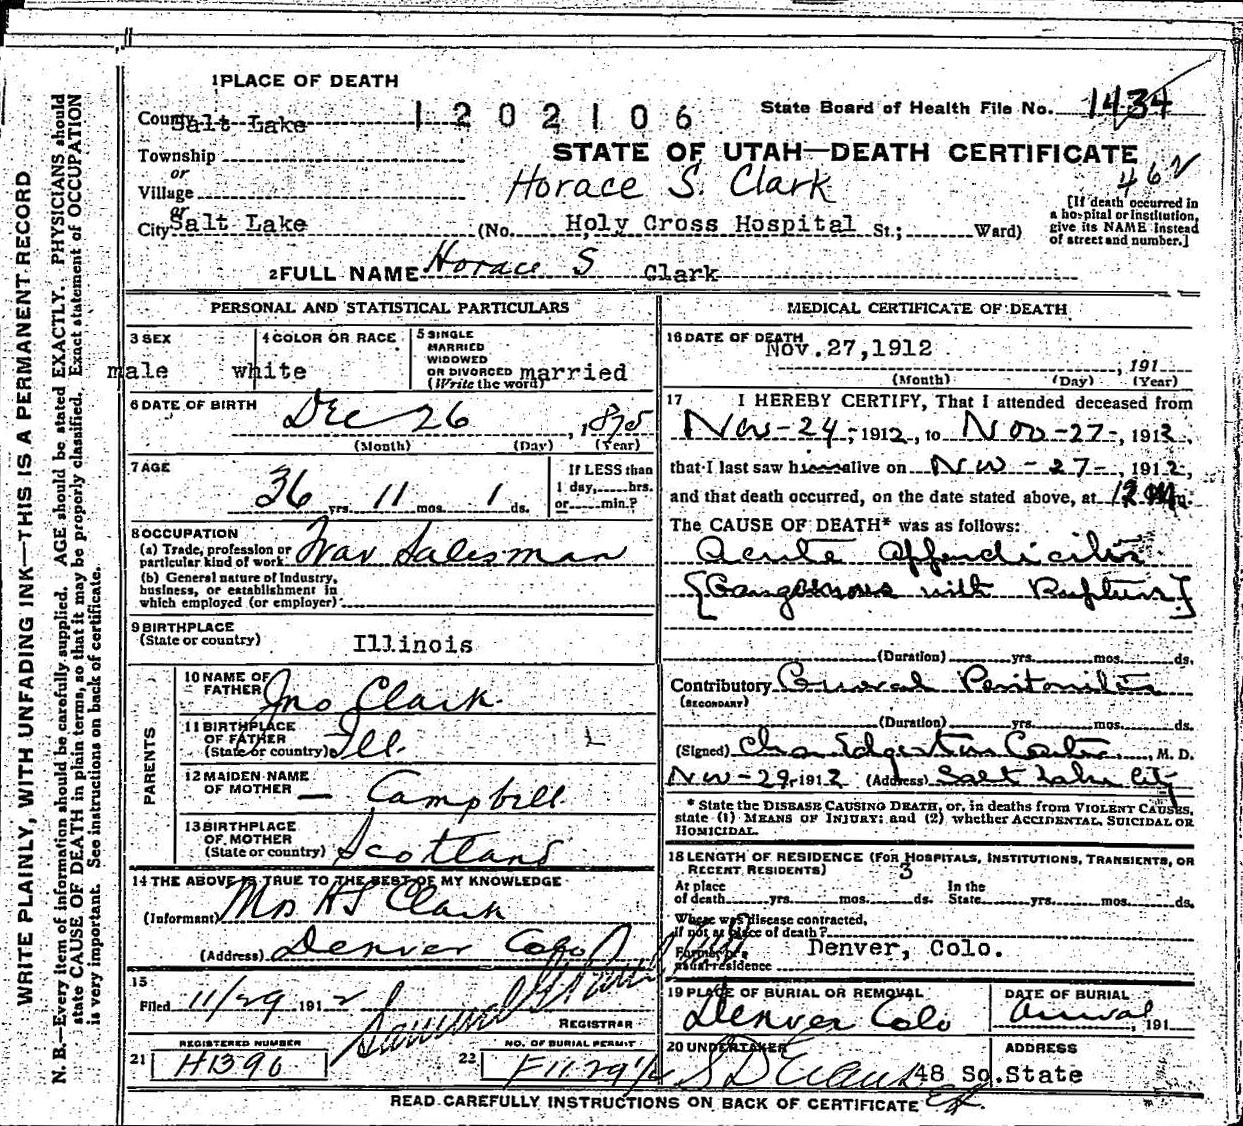 1 PLACE OF DEATH
County Salt Lake
1202106
State Board of Health File No. 1434
Township
or
Village
or
City Salt Lake
STATE OF UTAH—DEATH CERTIFICATE
462
Horace S. Clark
(No. Holy Cross Hospital St.; Ward)
[If death occurred in
a hospital or institution,
give its NAME instead
of street and number.]
2 FULL NAME Horace S Clark
PERSONAL AND STATISTICAL PARTICULARS
3 SEX
male
4 COLOR OR RACE
white
5 SINGLE
MARRIED
WIDOWED
OR DIVORCED
(Write the word) married
6 DATE OF BIRTH
Dec 26, 1875
(Month) (Day) (Year)
7 AGE
36 yrs. 11 mos. 1 ds.
If LESS than
1 day, hrs.
or min.?
8 OCCUPATION
(a) Trade, profession or
particular kind of work Trav Salesman
(b) General nature of Industry,
business, or establishment in
which employed (or employer)
9 BIRTHPLACE
(State or country) Illinois
PARENTS
10 NAME OF
FATHER Jno Clark
11 BIRTHPLACE
OF FATHER
(State or country) Ill.
12 MAIDEN NAME
OF MOTHER — Campbell
13 BIRTHPLACE
OF MOTHER
(State or country) Scotland
14 THE ABOVE IS TRUE TO THE BEST OF MY KNOWLEDGE
(Informant) Mrs H S Clark
(Address) Denver Colo
15
Filed 11/29 1912
REGISTRAR
REGISTERED NUMBER
21 H1390
NO. OF BURIAL PERMIT
22
MEDICAL CERTIFICATE OF DEATH
16 DATE OF DEATH
Nov.27,1912
, 191
(Month) (Day) (Year)
17 I HEREBY CERTIFY, That I attended deceased from
Nov-24-, 1912, to Nov-27-, 1912,
that I last saw h alive on Nov-27-, 1912,
and that death occurred, on the date stated above, at 12 m.
The CAUSE OF DEATH* was as follows:
Acute Appendicitis
[Gangrenous with Rupture]
(Duration) yrs. mos. ds.
Contributory General Peritonitis
(SECONDARY)
(Duration) yrs. mos. ds.
(Signed) Chas Edgerton Carter, M. D.
Nov-29, 1912 (Address) Salt Lake City
* State the DISEASE CAUSING DEATH, or, in deaths from VIOLENT CAUSES,
state (1) MEANS OF INJURY; and (2) whether ACCIDENTAL, SUICIDAL OR
HOMICIDAL.
18 LENGTH OF RESIDENCE (FOR HOSPITALS, INSTITUTIONS, TRANSIENTS, OR
RECENT RESIDENTS)
At place
of death yrs. mos. 3 ds.
In the
State yrs. mos. ds.
Where was disease contracted,
if not at place of death?
Former or
usual residence Denver, Colo.
19 PLACE OF BURIAL OR REMOVAL
Denver Colo
DATE OF BURIAL
Arrival, 191
20 UNDERTAKER
S D Evans
ADDRESS
48 So.State
READ CAREFULLY INSTRUCTIONS ON BACK OF CERTIFICATE
WRITE PLAINLY, WITH UNFADING INK—THIS IS A PERMANENT RECORD
N. B.—Every item of information should be carefully supplied. AGE should be stated EXACTLY. PHYSICIANS should
state CAUSE OF DEATH in plain terms, so that it may be properly classified. Exact statement of OCCUPATION
is very important. See instructions on back of certificate.